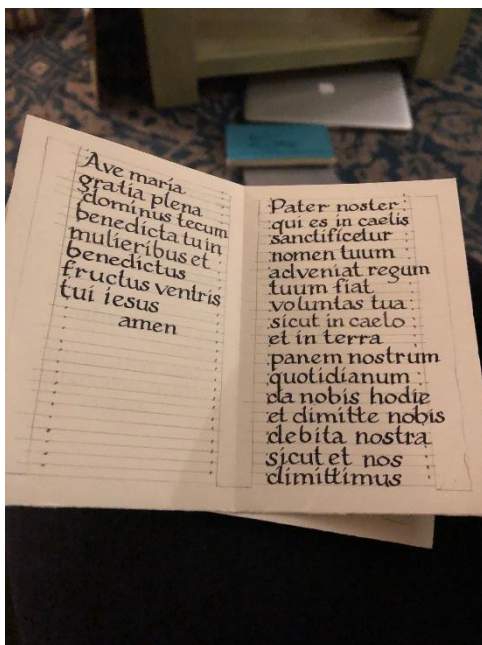 Ave maria
gratia plena
dominus tecum
benedicta tu in
mulieribus et
benedictus
fructus ventris
tui iesus
amen
Pater noster
qui es in caelis
sanctificetur
nomen tuum
adveniat regum
tuum fiat
voluntas tua
sicut in caelo
et in terra
panem nostrum
quotidianum
da nobis hodie
et dimitte nobis
debita nostra
sicut et nos
dimittimus